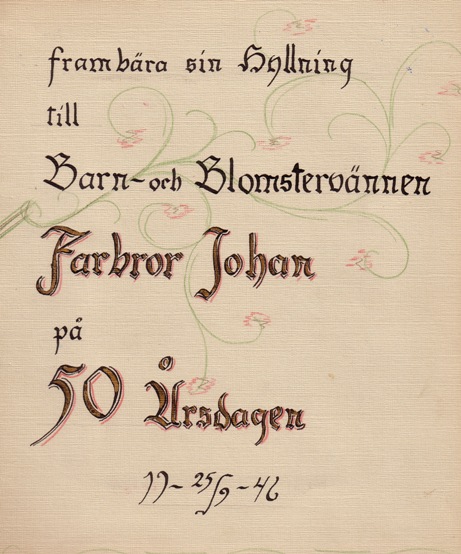 frambära sin Hyllning
till
Barn- och Blomstervännen
Farbror Johan
på
50 Årsdagen
19-25/9-46